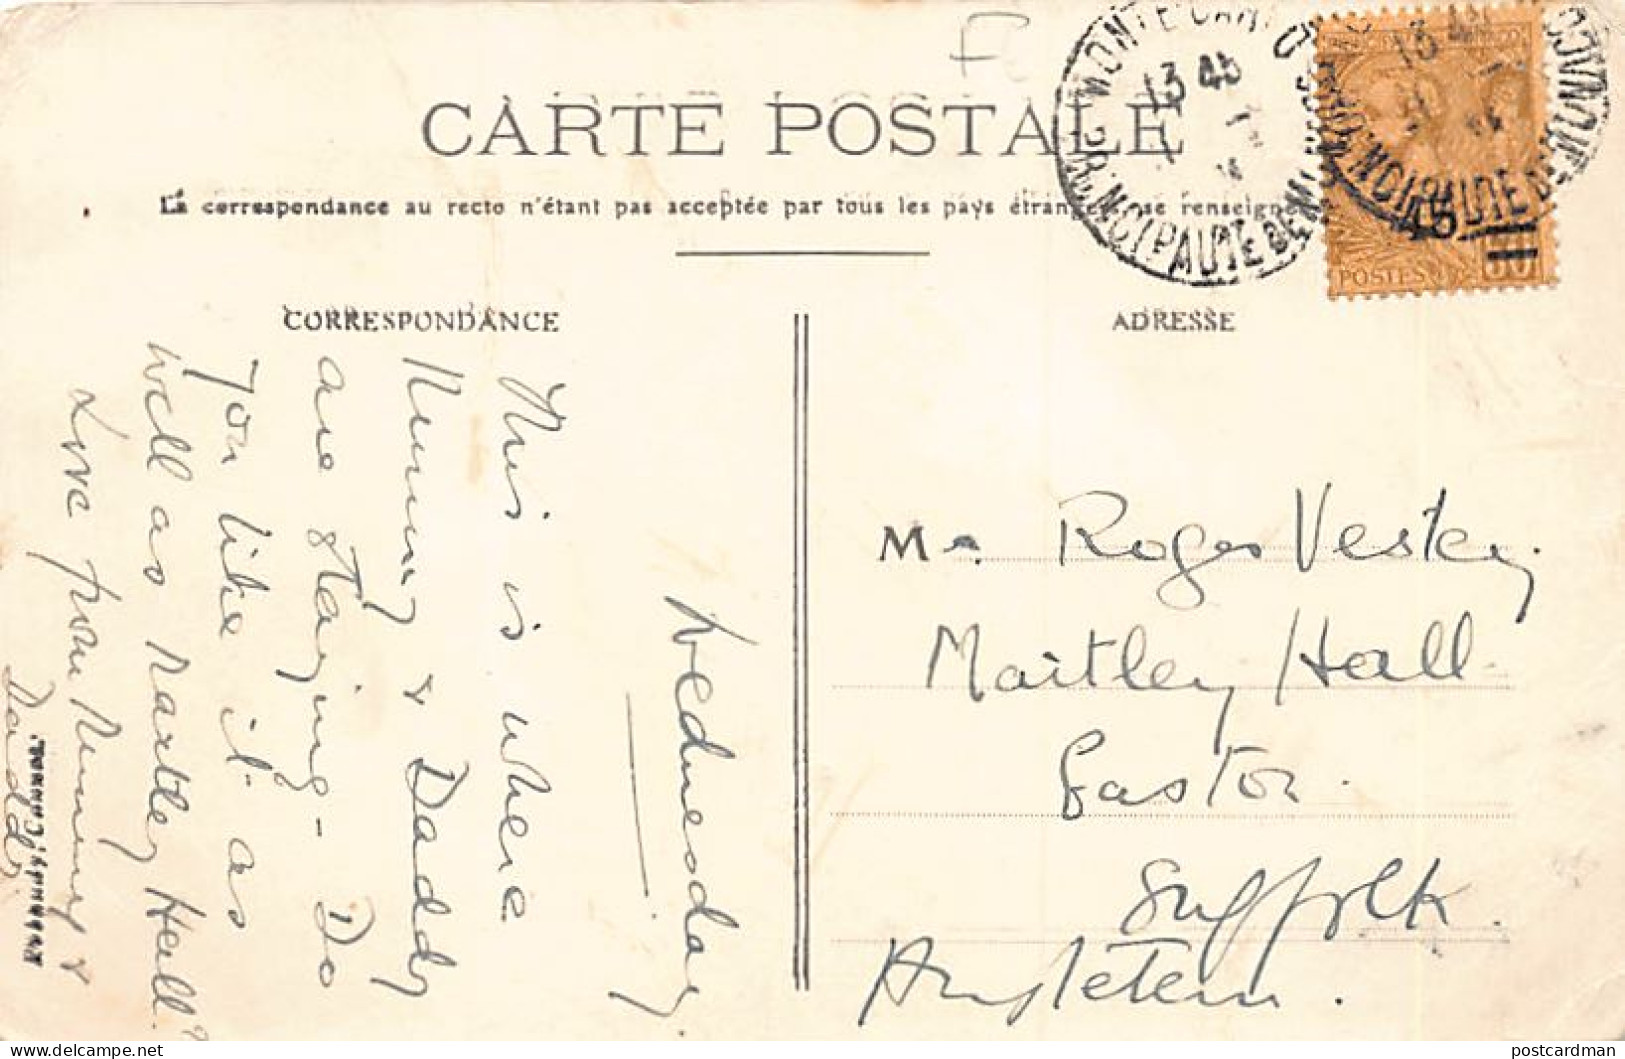 CARTE POSTALE
La correspondance au recto n'étant pas acceptée par tous les pays étrangers, se renseigne
CORRESPONDANCE
ADRESSE
MONTE CARLO
PRINCIPAUTE DE MONACO
13 45
45
POSTES 50
Wednesday.
This is where
Mummy & Daddy
are staying - Do
you like it as
well as Martley Hall?
Love from Mummy &
Daddy.
M r. Roger Vestey.
Martley Hall
Easton.
Suffolk.
Angleterre.
postcardman